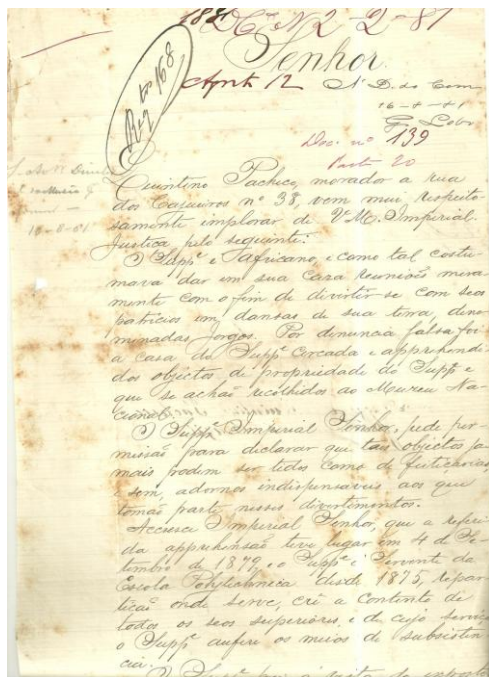 Senhor.
Regto 168
Doc. nº 139
Quintino Pacheco, morador a rua
dos Cajueiros nº 38, vem mui respeito-
samente implorar de V. M. Imperial
Justiça pelo seguinte:
O Suppe é Africano, e como tal costu-
mava dar em sua caza reuniões mera-
mente com o fim de divertir-se com seos
patricios em dansas de sua terra, deno-
minadas Jongos. Por denuncia falsa foi
a casa do Suppe cercada e apprehendi-
dos objectos de propriedade do Suppe e
que se achão recolhidos ao Muzeu Na-
cional.
O Suppe Imperial Senhor, pede per-
missão para declarar que tais objectos ja-
mais podem ser tidos como de feiticarias,
e sem, adornos indispensaveis aos que
tomão parte nesses divertimentos.
Accresce Imperial Senhor, que a referi-
da apprehensão teve lugar em 4 de Se-
tembro de 1879, e o Suppe é Servente da
Escola Polytechnica desde 1875, repar-
tição onde serve, crê a contento de
todos os seos superiores, e de cujo serviço
o Suppe aufere os meios de subsisten-
cia.